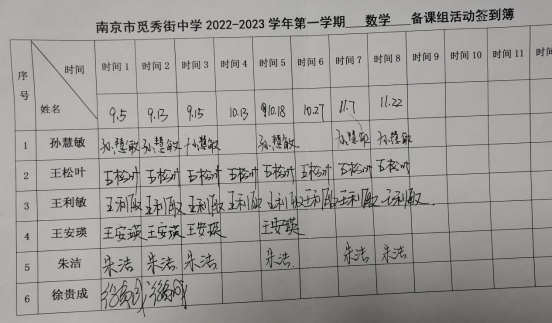 南京市觅秀街中学2022-2023学年第一学期 数学 备课组活动签到簿
序号 时间 姓名 时间1 时间2 时间3 时间4 时间5 时间6 时间7 时间8 时间9 时间10 时间11
9.5 9.13 9.15 10.13 10.18 10.27 11.7 11.22
1 孙慧敏 孙慧敏 孙慧敏 孙慧敏 孙慧敏 孙慧敏 孙慧敏
2 王松叶 王松叶 王松叶 王松叶 王松叶 王松叶 王松叶 王松叶 王松叶
3 王利敏 王利敏 王利敏 王利敏 王利敏 王利敏 王利敏 王利敏 王利敏
4 王安瑛 王安瑛 王安瑛 王安瑛 王安瑛
5 朱洁 朱洁 朱洁 朱洁 朱洁 朱洁 朱洁
6 徐贵成 徐贵成 徐贵成